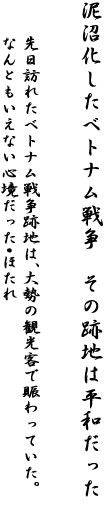 泥沼化したベトナム戦争　その跡地は平和だった
先日訪れたベトナム戦争跡地は、大勢の観光客で賑わっていた。
なんともいえない心境だった・ほたれ